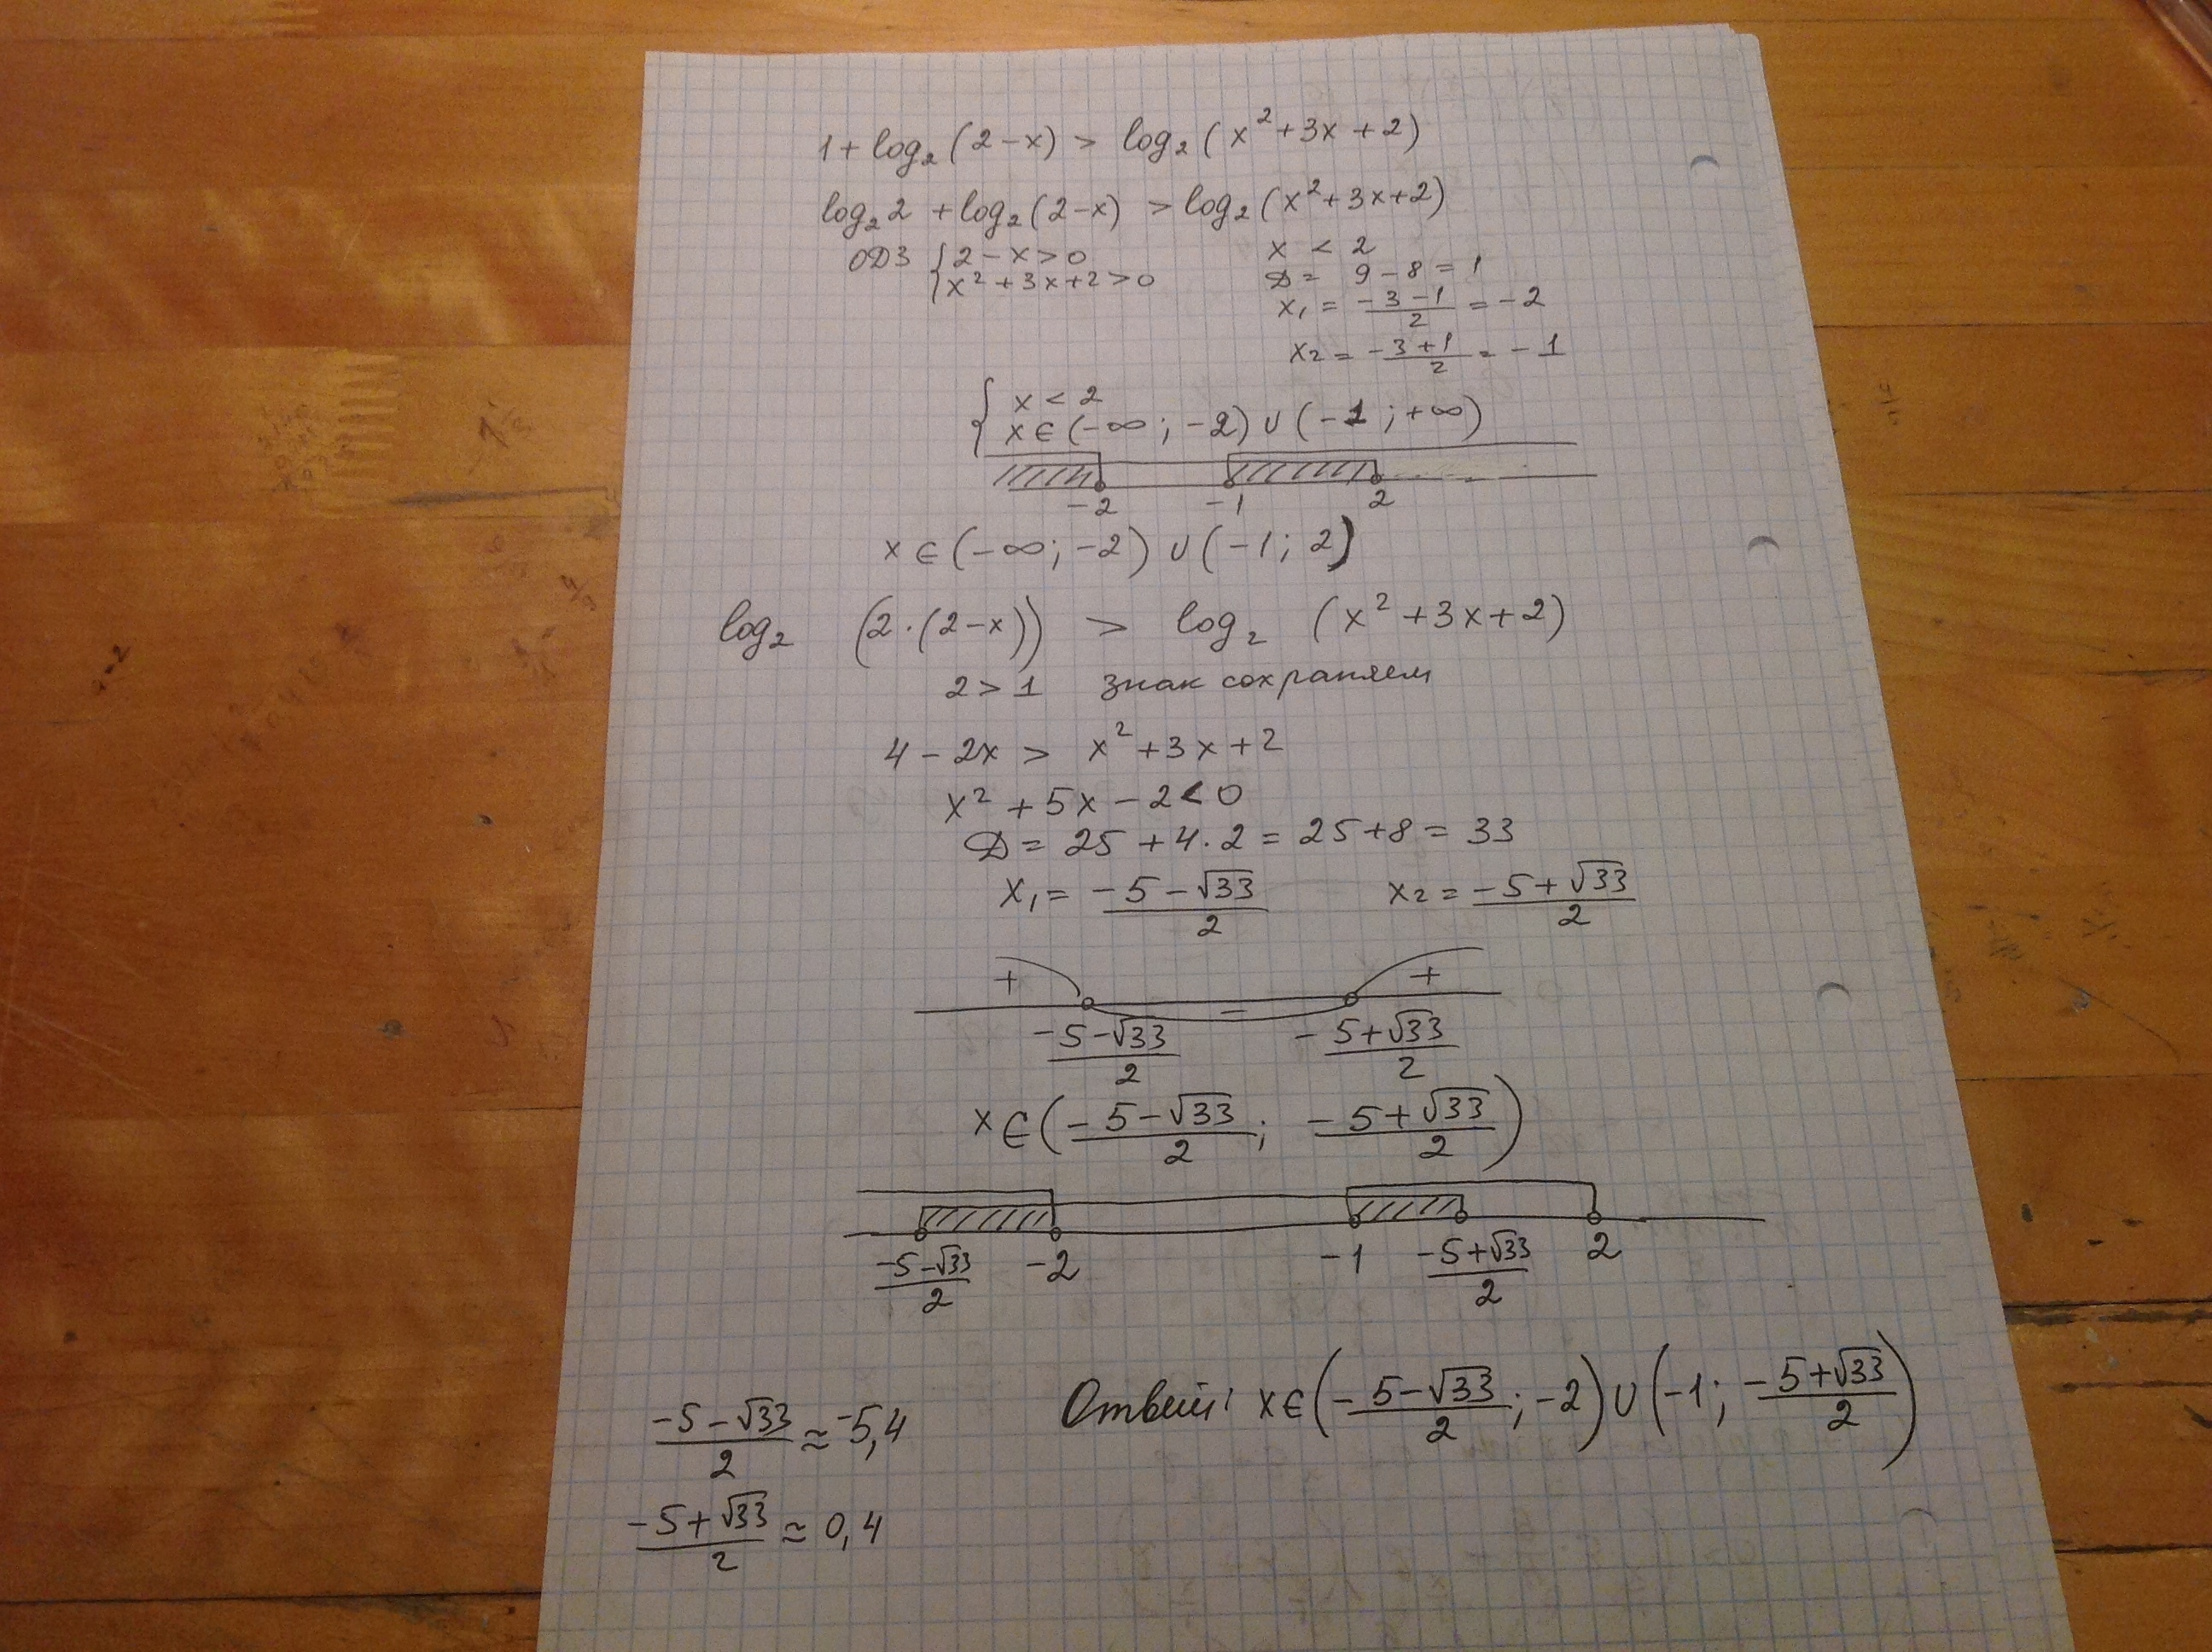 1 + log₂(2 − x) > log₂(x² + 3x + 2)
log₂2 + log₂(2−x) > log₂(x² + 3x + 2)
ОДЗ { 2 − x > 0
x² + 3x + 2 > 0
x < 2
D = 9 − 8 = 1
x₁ = (−3 − 1)/2 = −2
x₂ = (−3 + 1)/2 = −1
{ x < 2
x ∈ (−∞; −2) ∪ (−1; +∞)
−2 −1 2
x ∈ (−∞; −2) ∪ (−1; 2)
log₂ (2·(2−x)) > log₂ (x² + 3x + 2)
2 > 1 знак сохраняем
4 − 2x > x² + 3x + 2
x² + 5x − 2 < 0
D = 25 + 4·2 = 25 + 8 = 33
x₁ = (−5 − √33)/2 x₂ = (−5 + √33)/2
+ − +
(−5 − √33)/2 (−5 + √33)/2
x ∈ ((−5 − √33)/2; (−5 + √33)/2)
(−5 − √33)/2 −2 −1 (−5 + √33)/2 2
Ответ: x ∈ ((−5 − √33)/2; −2) ∪ (−1; (−5 + √33)/2)
(−5 − √33)/2 ≈ −5,4
(−5 + √33)/2 ≈ 0,4